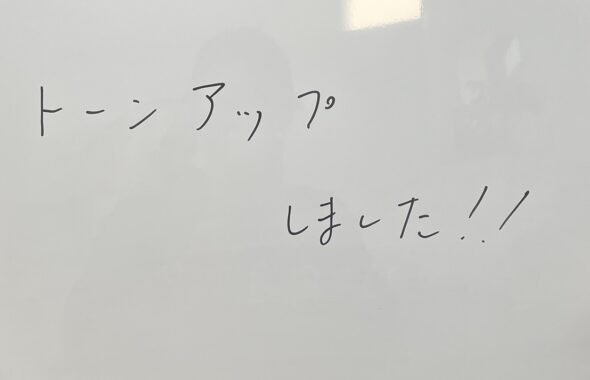 トーンアップ
しました!!